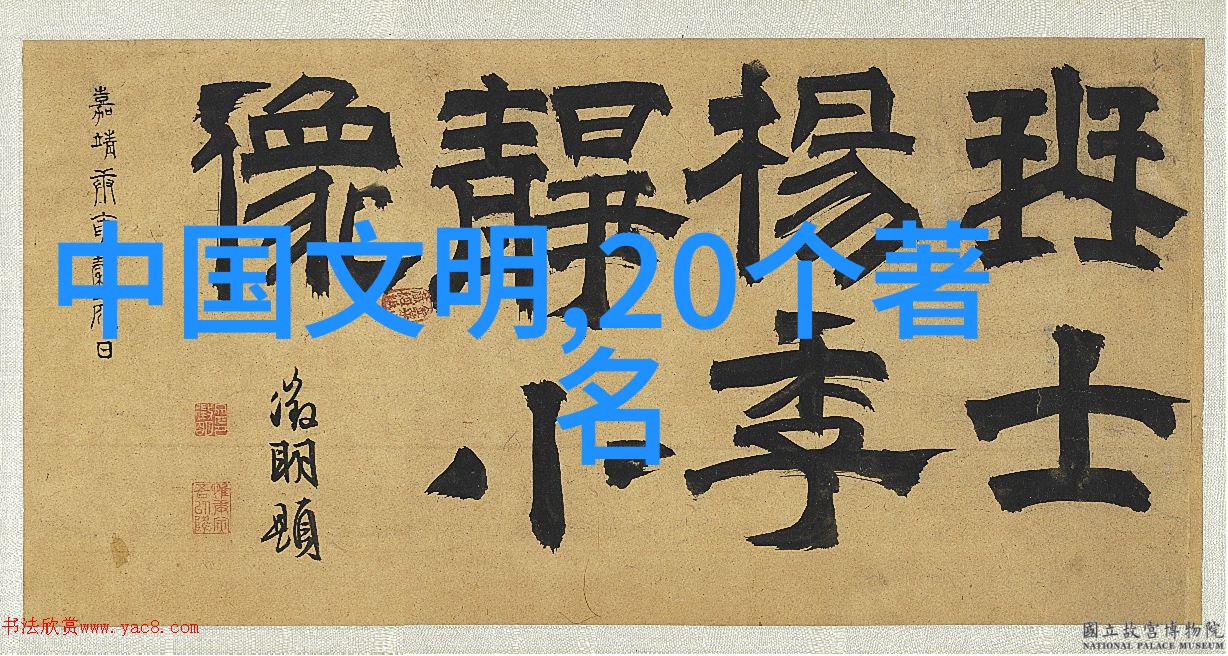 珡士
楊季
靜小
像
嘉靖庚寅 日
徵明題
中国文明,20个著
名
书法欣赏www.yac8.com
國立故宮博物院
NATIONAL PALACE MUSEUM